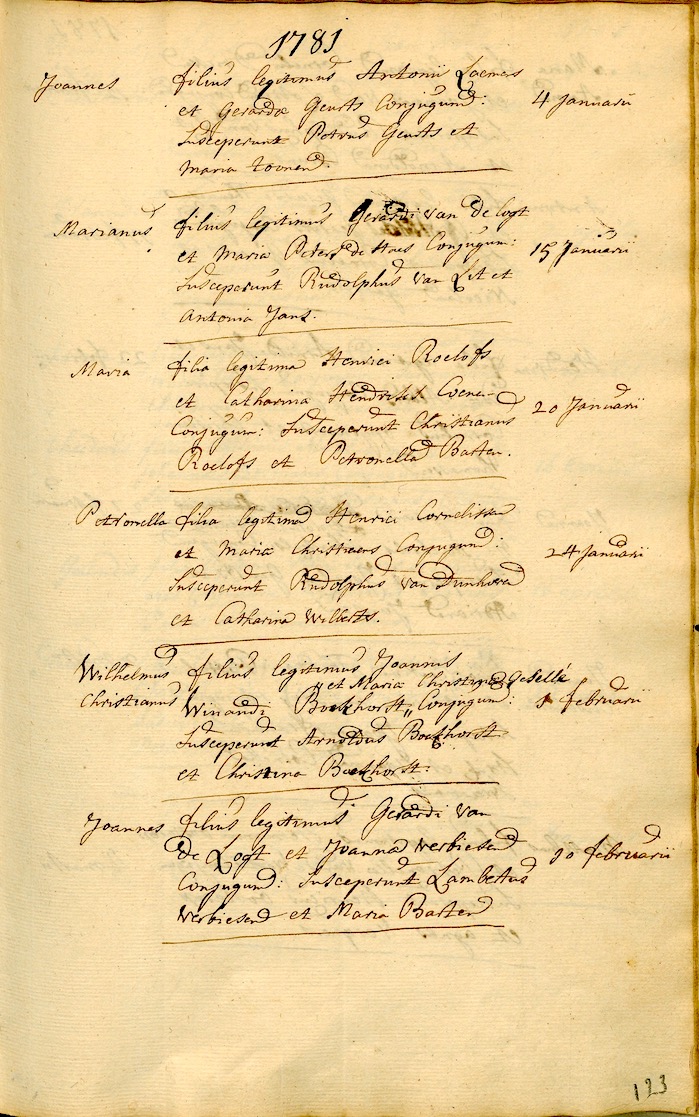 1781
Joannes filius legitimus Antonii Laemers
et Gerardæ Geurts Conjugum: 4 Januarii
Susceperunt Petrus Geurts et
Maria
Marianus filius legitimus Gerardi van de Logt
et Maria Peters de Haes Conjugum: 15 Januarii
Susceperunt Rudolphus van Lit et
Antonia Jans.
Maria filia legitima Henrici Roelofs
et Catharina Hendriks Coenen
Conjugum: Susceperunt Christianus 20 Januarii
Roelofs et Petronella Barten.
Petronella filia legitima Henrici Cornelissen
et Maria Christiaens Conjugum: 24 Januarii
Susceperunt Rudolphus van
et Catharina Willerts.
Wilhelmus filius legitimus Joannis
et Maria Christina Gesellé
Christianus Winandi Bockhorst, Conjugum: 1 februarii
Susceperunt Arnoldus Bockhorst
et Christina Bockhorst.
Joannes filius legitimus Gerardi van
de Logt et Joanna verbiesen 10 februarii
Conjugum: Susceperunt Lambertus
verbiesen et Maria Barten
123